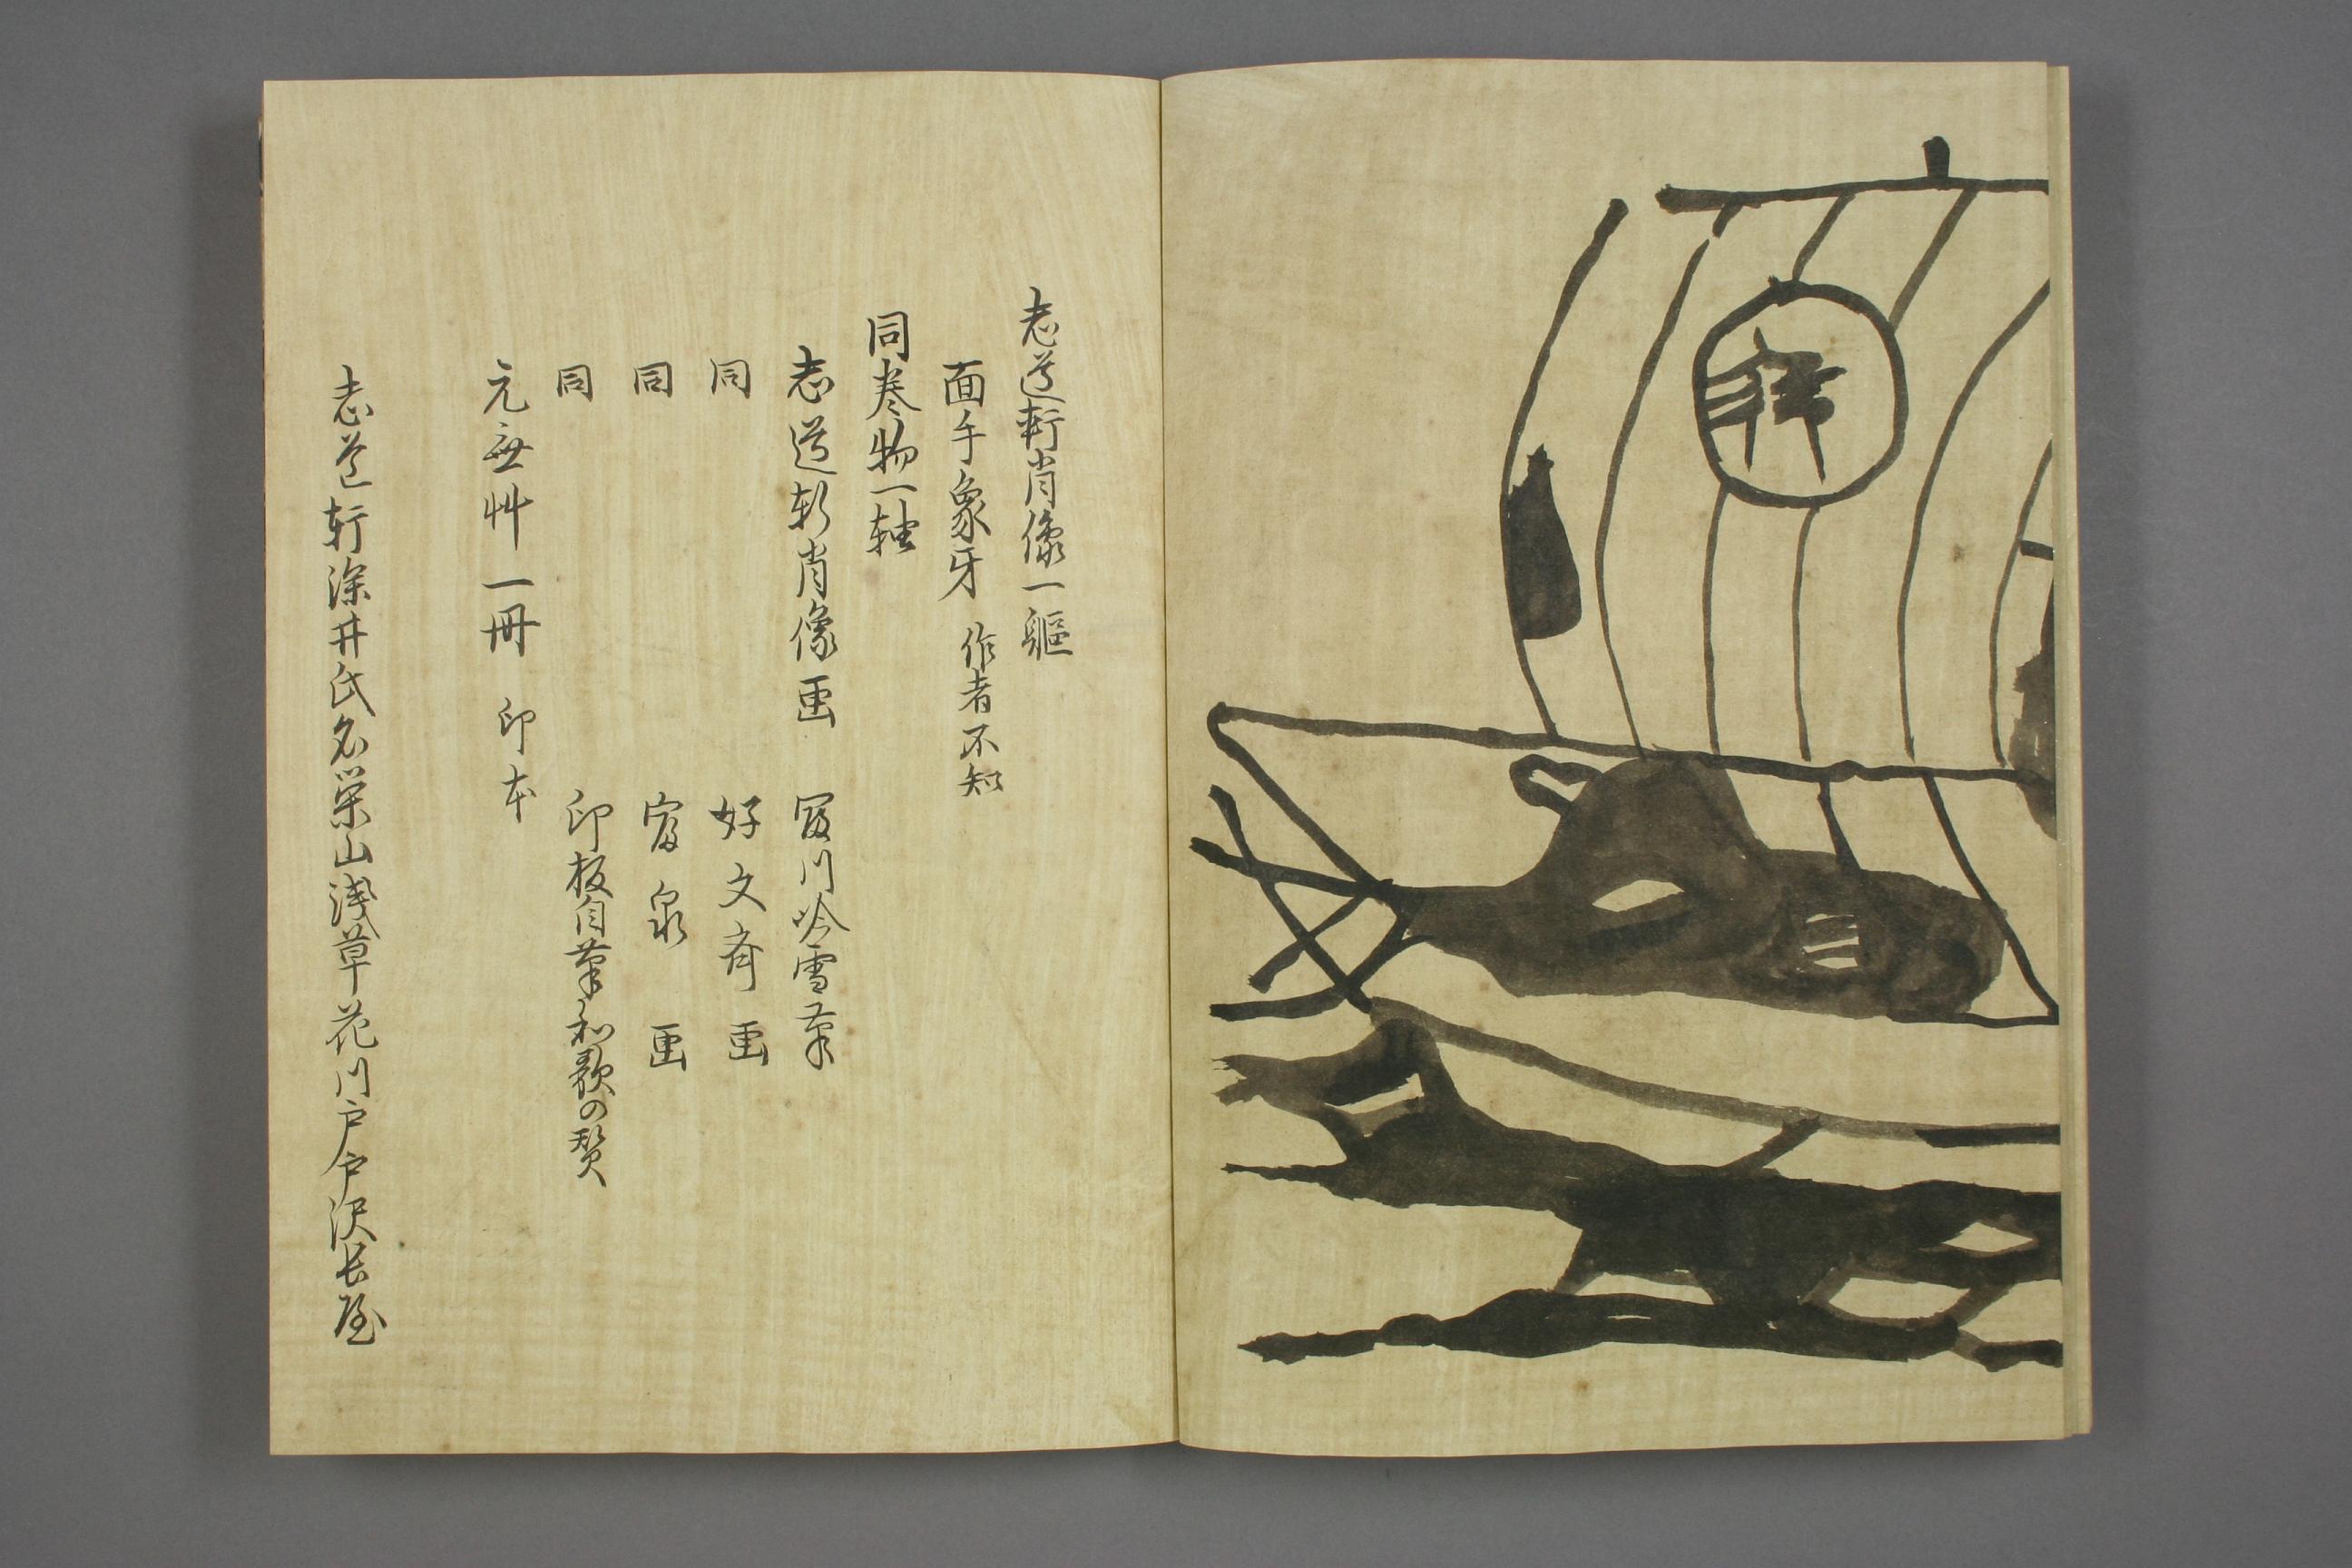 志道軒肖像一軀
面手象牙 作者不知
同巻物一軸
志道軒肖像画 冨川吟雪筆
同 好文斎画
同 冨泉画
同 印板自筆和歌の賛
元無艸一冊 印本
志道軒深井氏名栄山浅草花川戸戸沢長屋